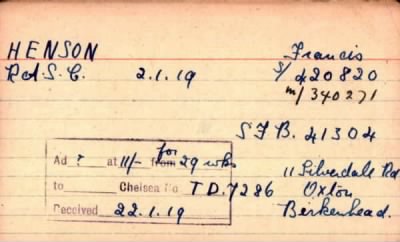 HENSON Francis
R.A.S.C. 2.1.19 S/420820
M/340271
S.F.B. 41304
for
Ad ? at 11/- from 29 wks 11 Silverdale Rd
to Chelsea No T.D.7286 Oxton
Received 22.1.19 Birkenhead.